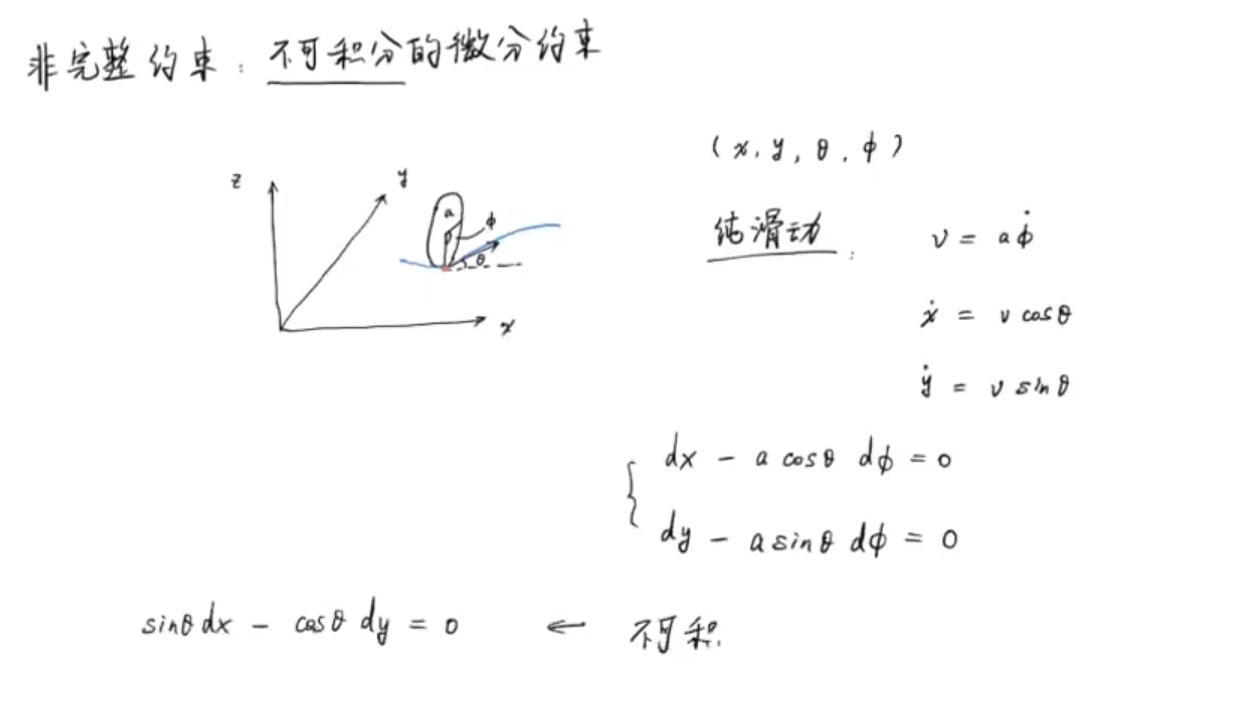 非完整约束：不可积分的微分约束
(x, y, θ, ϕ)
z
y
a
ϕ
θ
x
纯滑动：
v = aϕ̇
ẋ = v cosθ
ẏ = v sinθ
dx - a cosθ dϕ = 0
dy - a sinθ dϕ = 0
sinθ dx - cosθ dy = 0 ← 不可积.